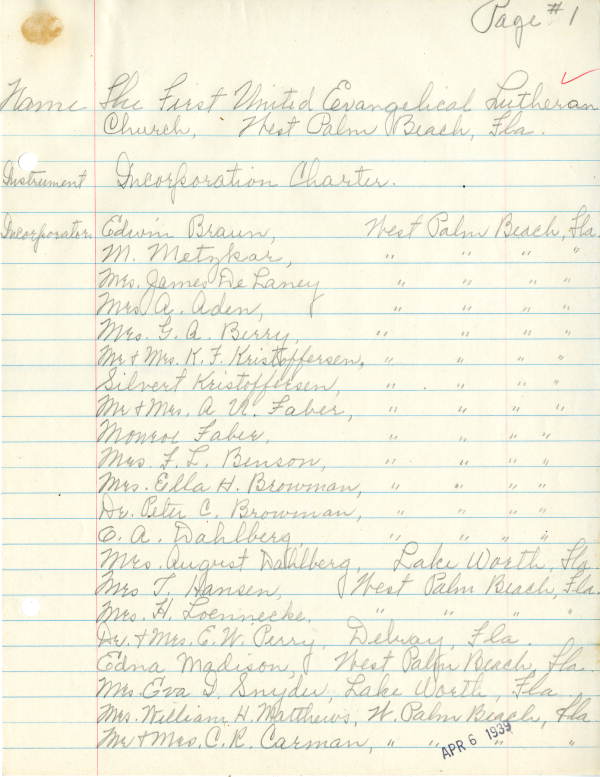 Page #1
Name The First United Evangelical Lutheran
Church, West Palm Beach, Fla.
Instrument Incorporation Charter.
Incorporators Edwin Braun, West Palm Beach, Fla.
M. Metzkar, " " " "
Mrs. James De Laney " " " "
Mrs A. Aden, " " " "
Mrs. G. A. Berry, " " " "
Mr & Mrs. K. F. Kristoffersen, " " " "
Silvert Kristoffersen, " " " "
Mr & Mrs. A W. Faber, " " " "
Monroe Faber, " " " "
Mrs. F. L. Benson, " " " "
Mrs. Ella H. Browman, " " " "
Dr. Peter C. Browman, " " " "
C. A. Dahlberg, " " " "
Mrs. August Dahlberg, Lake Worth, Fla
Mrs T. Hansen, West Palm Beach, Fla.
Mrs. H. Loennecke. " " " "
Dr. & Mrs. E. W. Perry, Delray, Fla.
Edna Madison, West Palm Beach, Fla.
Mrs. Eva D. Snyder, Lake Worth, Fla
Mrs. William H. Matthews, W. Palm Beach, Fla
Mr & Mrs. C. R. Carman, " " " "
APR 6 1939